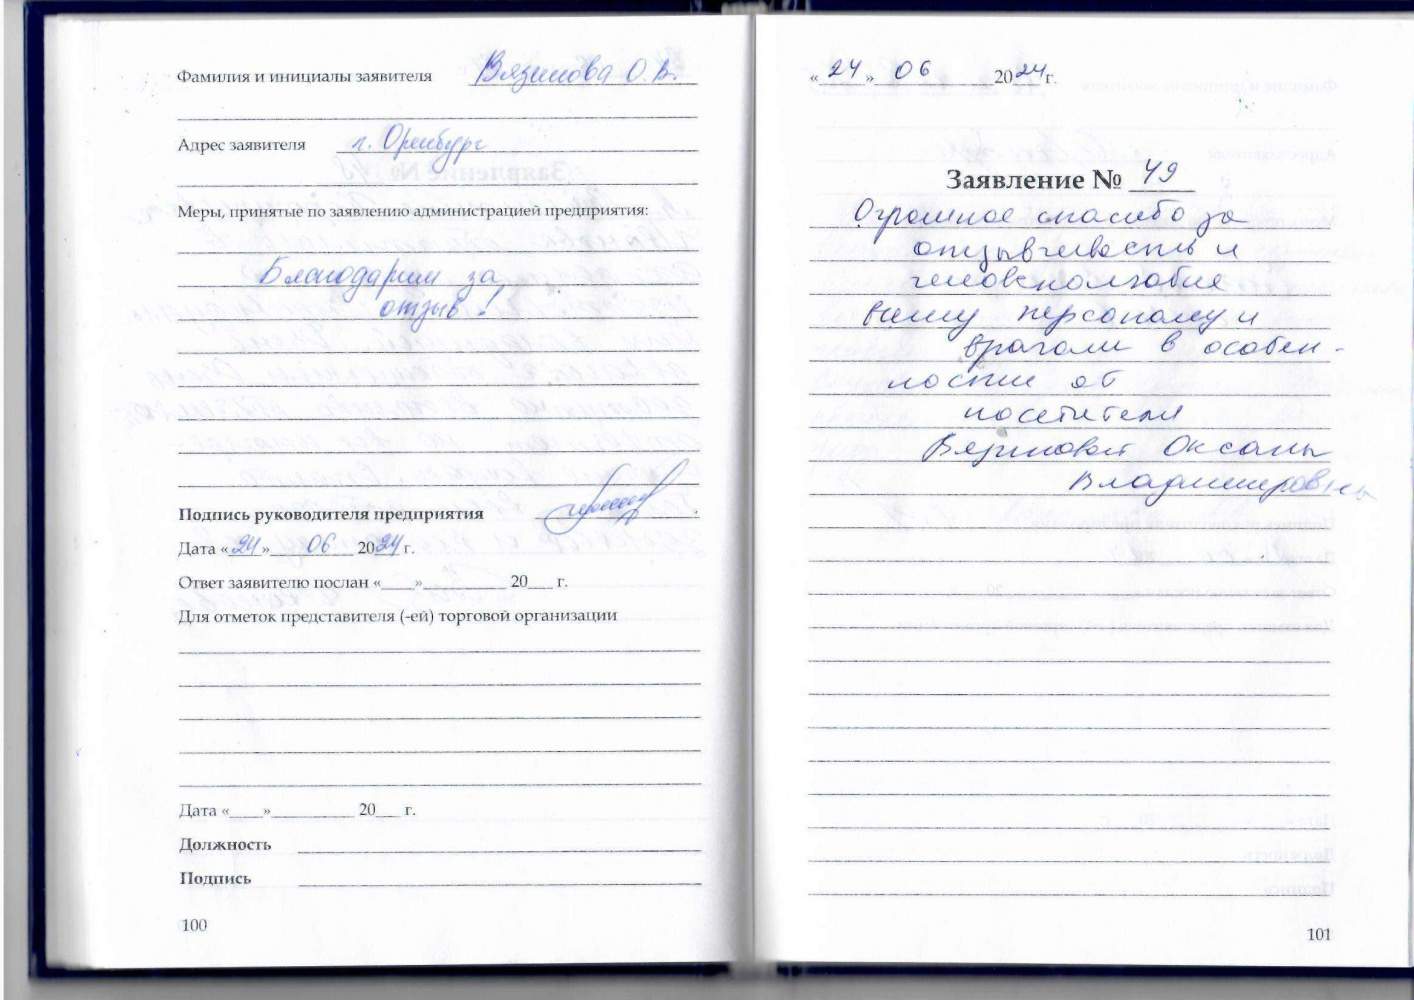 Фамилия и инициалы заявителя Вязикова О.В.
Адрес заявителя г. Оренбург
Меры, принятые по заявлению администрацией предприятия:
Благодарим за
отзыв!
Подпись руководителя предприятия
Дата «24» 06 2024 г.
Ответ заявителю послан «____»__________ 20___ г.
Для отметок представителя (-ей) торговой организации
Дата «____»__________ 20___ г.
Должность
Подпись
100
«24» 06 2024г.
Заявление № 49
Огромное спасибо за
отзывчивость и
человеколюбие
вашему персоналу и
врачам в особен-
ности от
посетителя
Оксаны
Владимировны
101